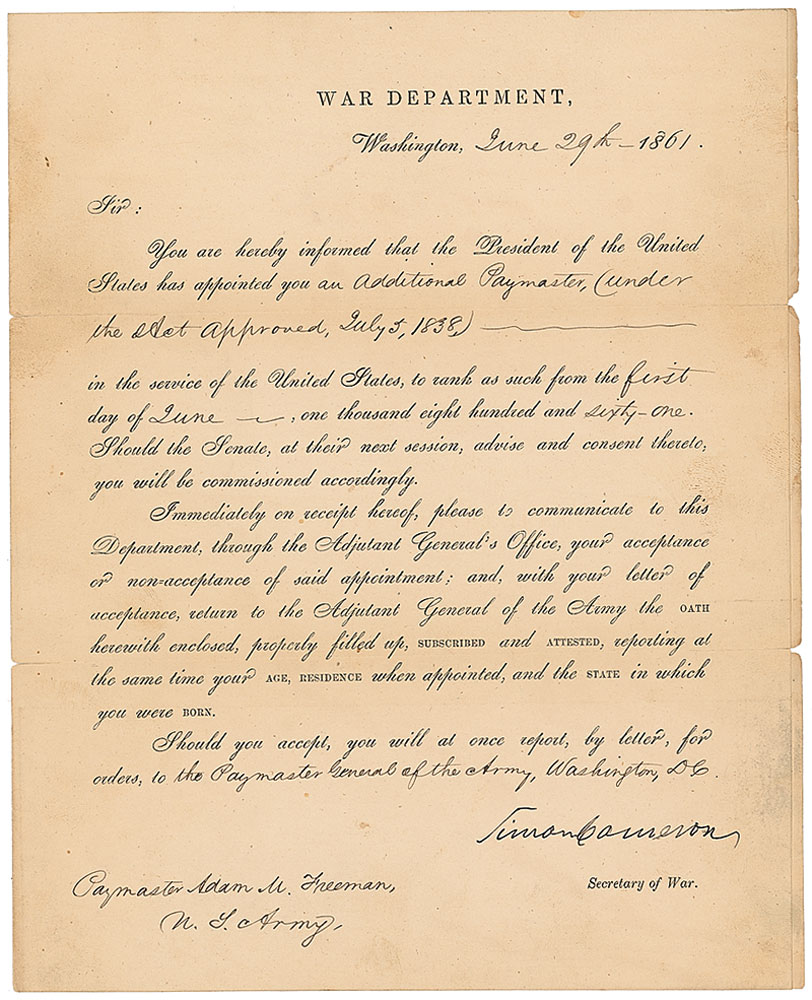 WAR DEPARTMENT,
Washington, June 29th - 1861.
Sir:
You are hereby informed that the President of the United
States has appointed you an Additional Paymaster, (under
the Act approved, July 5, 1838,)
in the service of the United States, to rank as such from the first
day of June, one thousand eight hundred and sixty-one.
Should the Senate, at their next session, advise and consent thereto,
you will be commissioned accordingly.
Immediately on receipt hereof, please to communicate to this
Department, through the Adjutant General's Office, your acceptance
or non-acceptance of said appointment; and, with your letter of
acceptance, return to the Adjutant General of the Army the OATH
herewith enclosed, properly filled up, SUBSCRIBED and ATTESTED, reporting at
the same time your AGE, RESIDENCE when appointed, and the STATE in which
you were BORN.
Should you accept, you will at once report, by letter, for
orders, to the Paymaster General of the Army, Washington, D C.
Simon Cameron
Secretary of War.
Paymaster Adam M. Freeman,
U. S. Army.